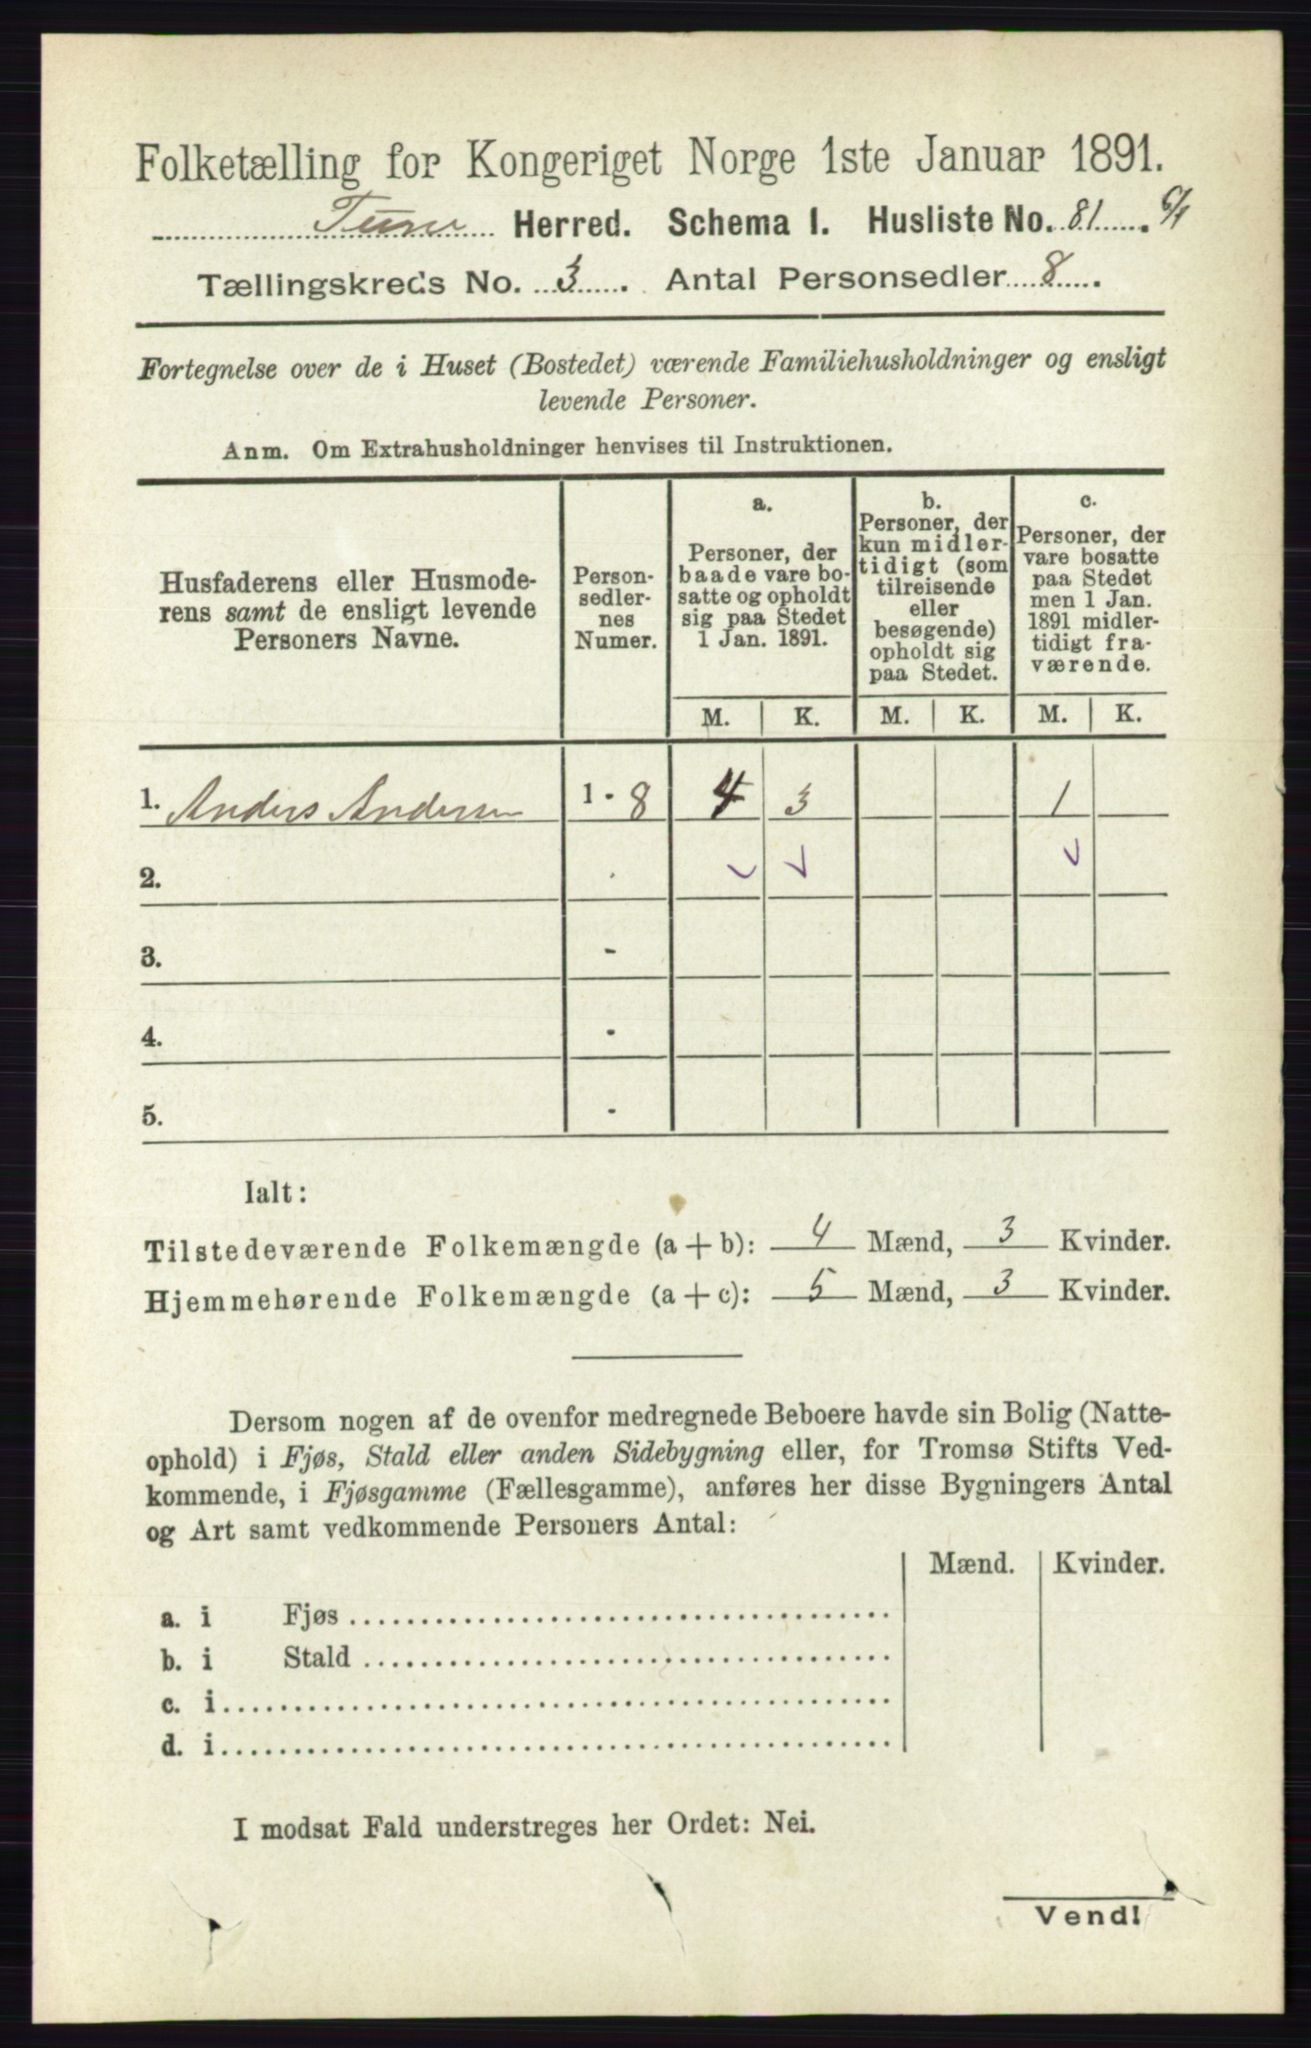 Folketælling for Kongeriget Norge 1ste Januar 1891.
Tune Herred. Schema I. Husliste No. 81.
Tællingskreds No. 3. Antal Personsedler 8.
Fortegnelse over de i Huset (Bostedet) værende Familiehusholdninger og ensligt
levende Personer.
Anm. Om Extrahusholdninger henvises til Instruktionen.
Husfaderens eller Husmode-
rens samt de ensligt levende
Personers Navne.
Person-
sedler-
nes
Numer.
a.
Personer, der
baade vare bo-
satte og opholdt
sig paa Stedet
1 Jan. 1891.
b.
Personer, der
kun midler-
tidigt (som
tilreisende
eller
besøgende)
opholdt sig
paa Stedet.
c.
Personer, der
vare bosatte
paa Stedet
men 1 Jan.
1891 midler-
tidigt fra-
værende.
M. K. M. K. M. K.
1. Anders Andersen 1 - 8 4 3 1
2. -
3. -
4. -
5. -
Ialt:
Tilstedeværende Folkemængde (a + b): 4 Mænd, 3 Kvinder.
Hjemmehørende Folkemængde (a + c): 5 Mænd, 3 Kvinder.
Dersom nogen af de ovenfor medregnede Beboere havde sin Bolig (Natte-
ophold) i Fjøs, Stald eller anden Sidebygning eller, for Tromsø Stifts Ved-
kommende, i Fjøsgamme (Fællesgamme), anføres her disse Bygningers Antal
og Art samt vedkommende Personers Antal:
Mænd. Kvinder.
a. i Fjøs
b. i Stald
c. i
d. i
I modsat Fald understreges her Ordet: Nei.
Vend!